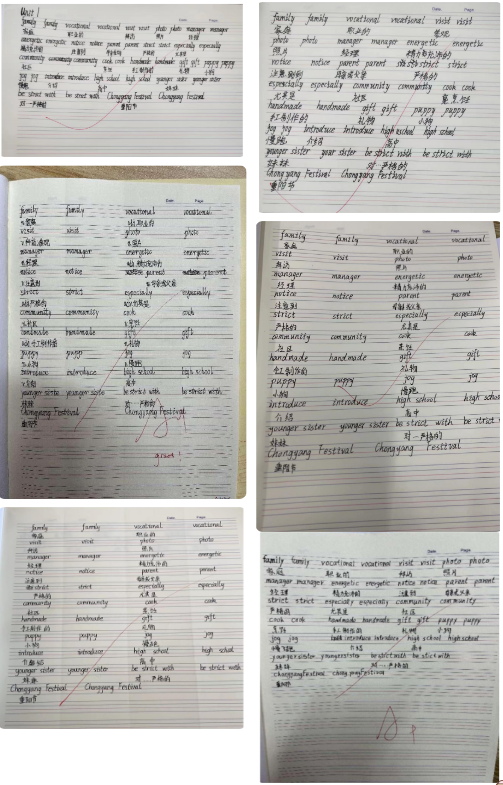 Unit 1
family family vocational vocational visit visit photo photo manager manager
家庭 职业的 拜访 照片 经理
energetic energetic notice notice parent parent strict strict especially especially
community community cook cook handmade handmade gift gift puppy puppy
社区 烹饪 手工制作的 礼物 小狗
jog jog introduce introduce high school high school younger sister
慢跑 介绍 高中 妹妹
be strict with be strict with Chongyang Festival Chongyang Festival
对…严格的 重阳节
family family vocational vocational visit visit
家庭 职业的
photo photo manager manager energetic energetic
照片 经理 精力充沛的
notice notice parent parent strict strict
注意到 严格的
especially especially community community cook cook
尤其是 社区 烹饪
handmade handmade gift gift puppy puppy
手工制作的 礼物 小狗
jog jog introduce introduce high school high school
慢跑 介绍 高中
younger sister be strict with be strict with
妹妹 对…严格的
Chongyang Festival Chongyang Festival
重阳节
family family vocational vocational
visit visit photo photo
manager manager energetic energetic
notice notice parent parent
strict strict especially especially
community community cook cook
handmade handmade gift gift
puppy puppy jog jog
introduce introduce high school high school
高中
younger siste younger siste be strict with be strict with
妹妹 对…严格的
Chongyang Festival Chongyang Festival
重阳节
family family vocational vocational
家庭 职业的
visit visit photo photo
拜访 照片
manager manager energetic energetic
经理 精力充沛的
notice notice parent parent
注意到
strict strict especially especially
严格的 尤其是
community community cook cook
社区 烹饪
handmade handmade gift gift
手工制作的 礼物
puppy puppy jog jog
小狗 慢跑
introduce introduce high school high school
介绍 高中
younger sister younger sister be strict with be strict
妹妹 对…严格的
Chongyang Festival Chongyang Festival
重阳节
family family vocational vocational
家庭 职业的
visit visit photo photo
拜访 照片
manager manager energetic energetic
经理 精力充沛的
notice notice parent parent
注意到
strict strict especially especially
严格的 尤其是
community community cook cook
社区 烹饪
handmade handmade gift gift
手工制作的 礼物
puppy puppy jog jog
小狗
introduce introduce high school high school
介绍 高中
younger sister younger sister be strict with be strict with
妹妹 对…严格的
Chongyang Festival Chongyang Festival
重阳节
family family vocational vocational visit visit photo photo
家庭 职业的 拜访 照片
manager manager energetic energetic notice notice parent parent
经理 精力充沛的 注意到
strict strict especially especially community community
严格的 尤其是 社区
cook cook handmade handmade gift gift puppy puppy
烹饪 手工制作的 礼物 小狗
jog jog introduce introduce high school high school
慢跑 介绍 高中
younger sister younger sister be strict with be strict with
妹妹 对…严格的
Chongyang Festival Chongyang Festival
重阳节